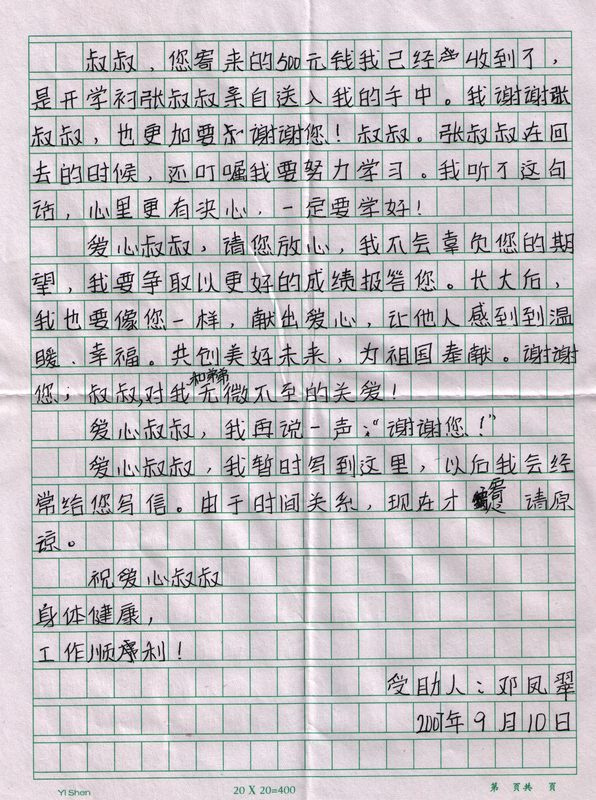 叔叔，您寄来的500元钱我已经收到了，
是开学初张叔叔亲自送入我的手中。我谢谢张
叔叔，也更加要谢谢您！叔叔。张叔叔在回
去的时候，还叮嘱我要努力学习。我听了这句
话，心里更有决心，一定要学好！
爱心叔叔，请您放心，我不会辜负您的期
望，我要争取以更好的成绩报答您。长大后，
我也要像您一样，献出爱心，让他人感到到温
暖、幸福。共创美好未来，为祖国奉献。谢谢
您；叔叔，对我和弟弟无微不至的关爱！
爱心叔叔，我再说一声：“谢谢您！”
爱心叔叔，我暂时写到这里，以后我会经
常给您写信。由于时间关系，现在才寄 请原
谅。
祝爱心叔叔
身体健康，
工作顺利！
受助人：邓凤翠
2007年9月10日
Yi Shen
20 X 20=400
第 页共 页